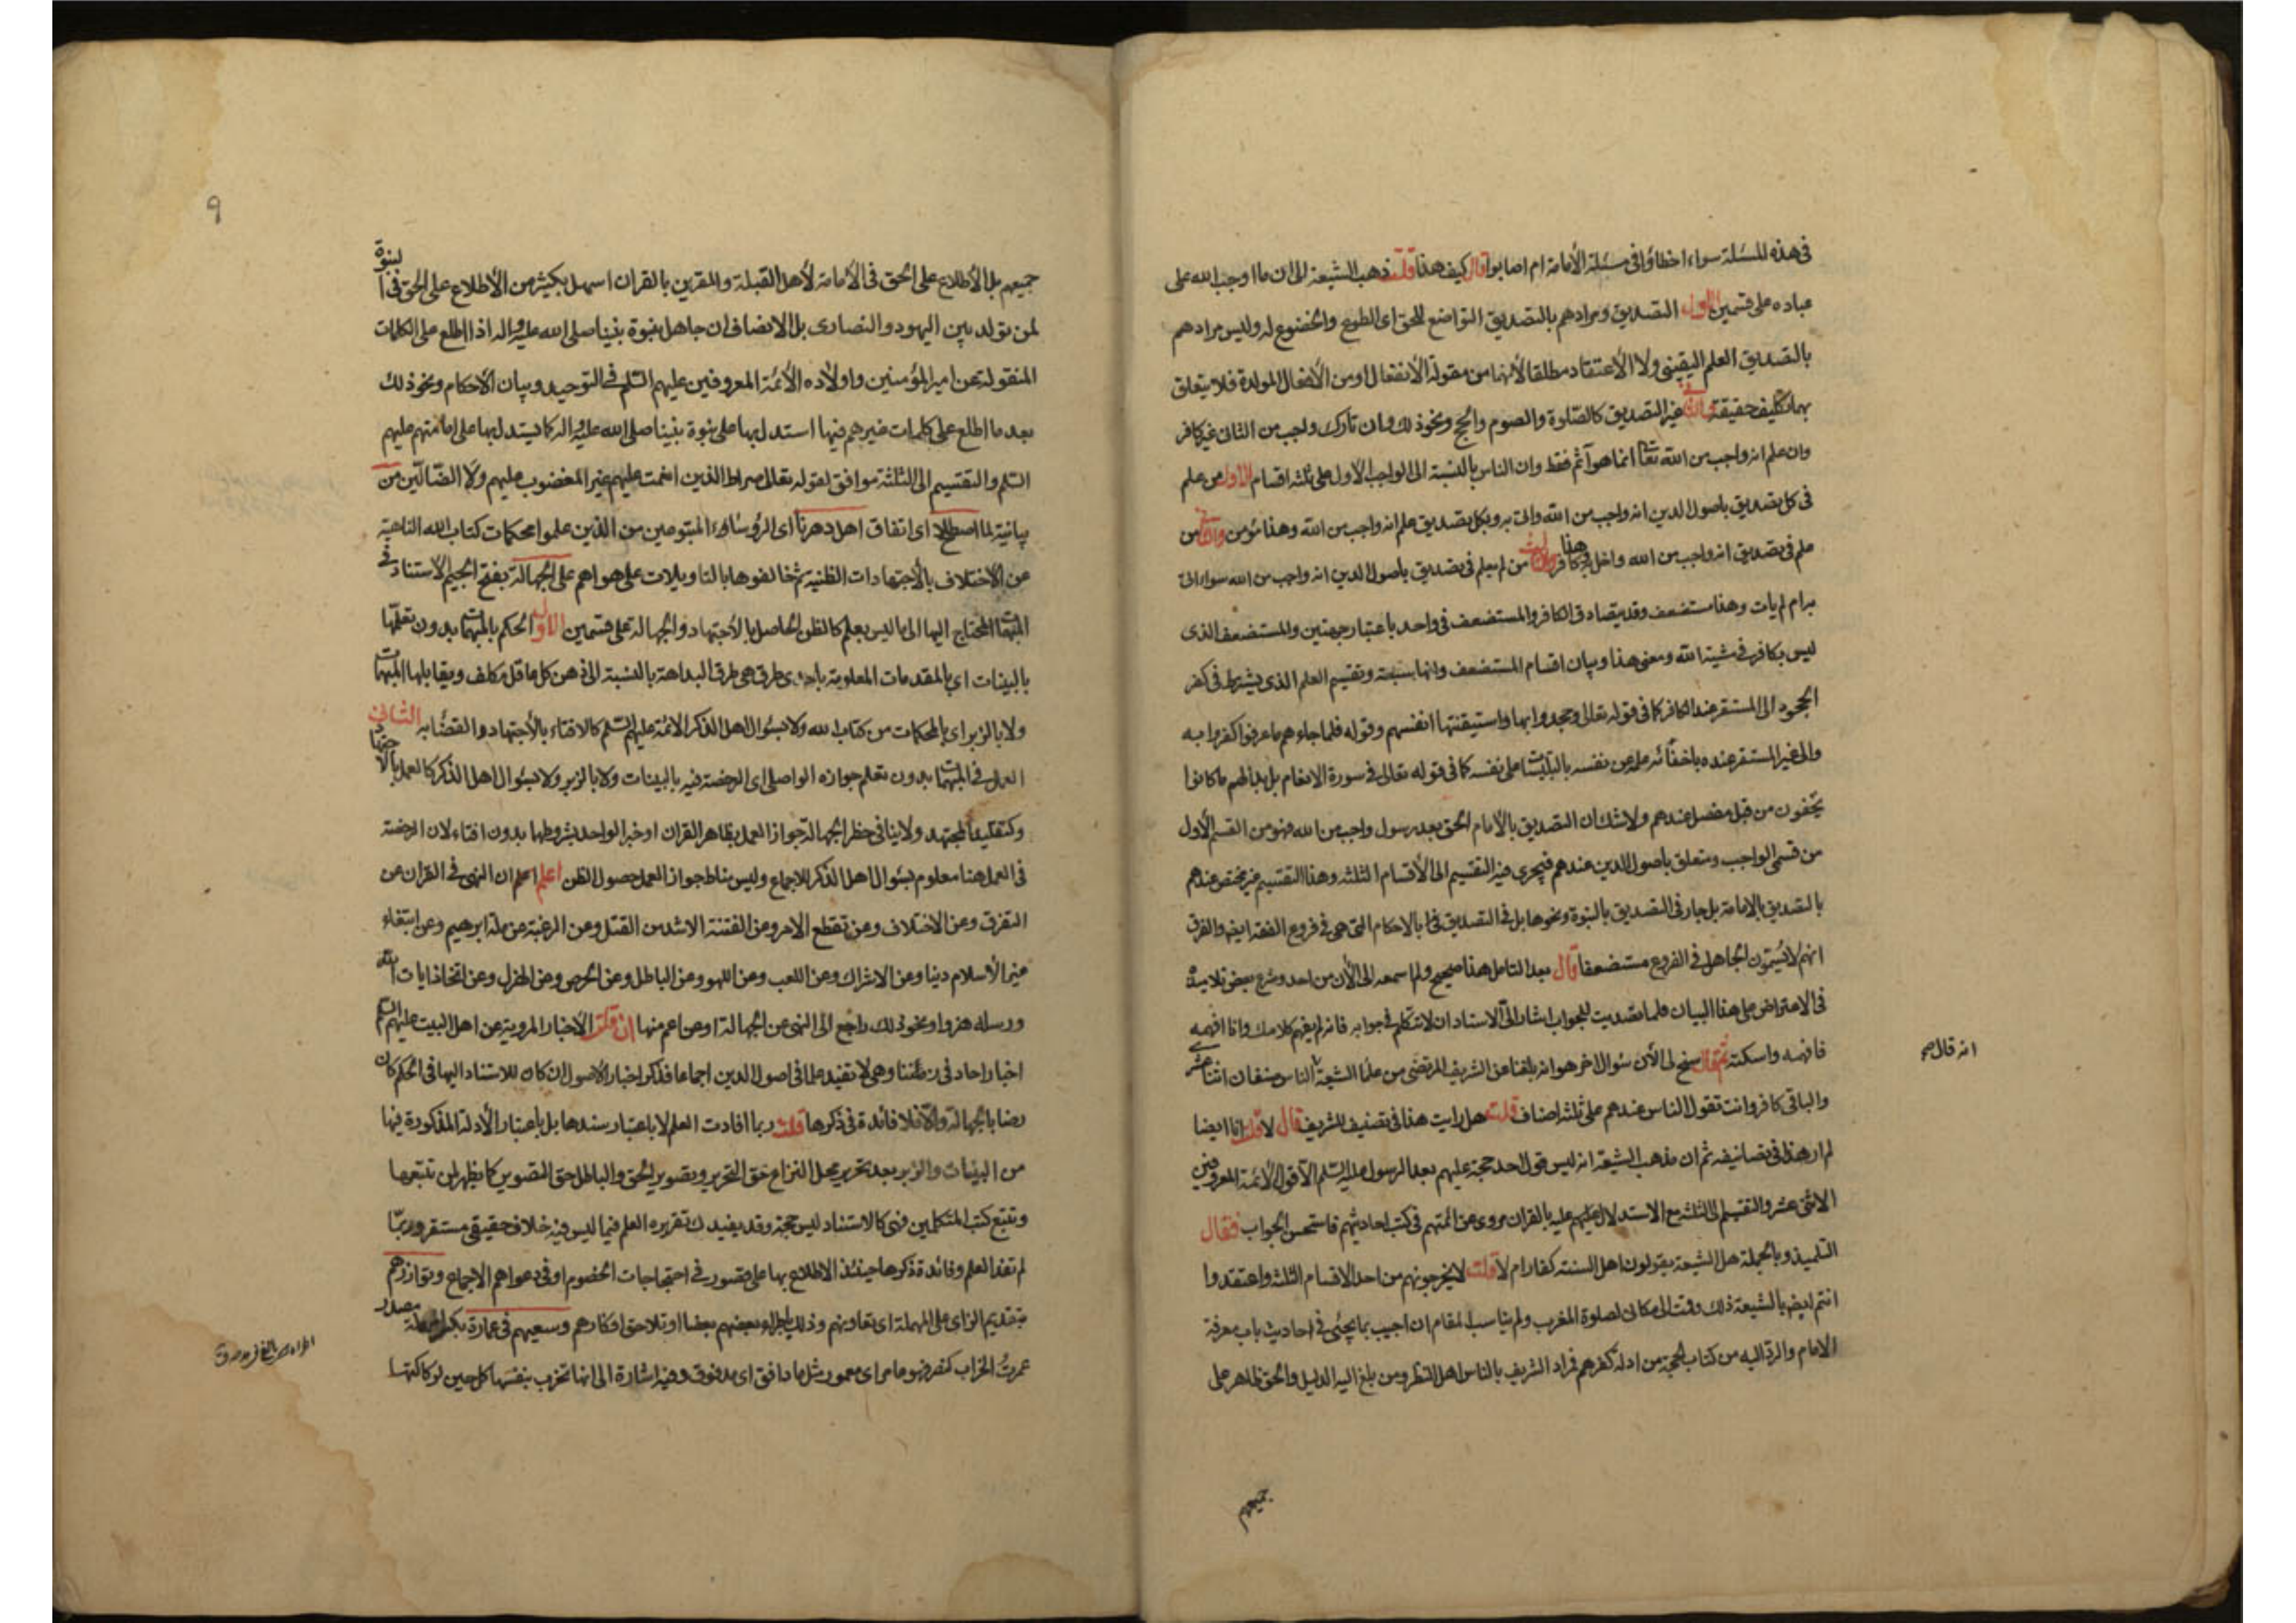 في هذه المسئلة سواء اخطاؤا في مسئلة الأمامة ام اصابوا قال كيف هذا قلت ذهب الشيعة الى ان ما اوجب الله على
عباده على قسمين الأول التصديق ومرادهم بالتصديق التواضع للحق اى الطوع والخضوع له وليس مرادهم
بالتصديق العلم اليقيني ولا الأعتقاد مطلقا لأنهما من مقولة الأنفعال او من الأفعال المولدة فلا يتعلق
بهما تكليف حقيقة والثاني غير التصديق كالصلوة والصوم والحج ونحو ذلك وان تارك واجب من الثاني غير كافر
وان علم انه واجب من الله تعا انما هو آثم فقط وان الناس بالنسبة الى الواجب الأول على ثلثة اقسام الأول من علم
في كل تصديق باصول الدين انه واجب من الله واتى به وبكل تصديق علم انه واجب من الله وهذا مؤمن والثاني من
علم في تصديق انه واجب من الله واخل به وهذا كافر والثالث من لم يعلم في تصديق باصول الدين انه واجب من الله سواء اتى
به ام لم يات وهذا مستضعف وقد يتصادق الكافر والمستضعف في واحد باعتبار جهتين والمستضعف الذى
ليس بكافر في مشية الله ومعنى هذا وبيان اقسام المستضعف وانها سبعة وتقسيم العلم الذى يشترط في كفر
الجحود الى المستقر عند الكافر كما في قوله تعالى وجحدوا بها واستيقنتها انفسهم وقوله فلما جاءهم ما عرفوا كفروا به
والى غير المستقر عنده باخفائه علمه عن نفسه بالتلبيسات على نفسه كما في قوله تعالى في سورة الانعام بل بدا لهم ما كانوا
يخفون من قبل مفصل عندهم ولا شك ان التصديق بالأمام الحق بعد رسول واجب من الله فهو من القسم الأول
من قسمي الواجب ومتعلق باصول الدين عندهم فيجرى فيه التقسيم الى الأقسام الثلثة وهذا التقسيم غير مختص عندهم
بالتصديق بالإمامة بل جار في التصديق بالنبوة ونحوها بل في التصديق بالاحكام التى هى في فروع الفقه ايضا والفرق
انهم لا يسمون الجاهل في الفروع مستضعفا قال بعد التامل هذا صحيح ولم اسمعه الى الأن من احد وشرع بعض تلاميذه
في الاعتراض على هذا البيان فلما تصديت للجواب اشار الى الاستاد ان لا تتكلم في جوابه فانه لم يفهم كلامك وانا افهمه
فافهمه واسكته ثم قال سنح لى الأن سؤال اخر هو انه بلغنا عن الشريف المرتضى من علماء الشيعة الناس صنفان اثنا عشرى
والباقى كافر وانت تقول الناس عندهم على ثلثة اصناف قلت هل رايت هذا في تصنيف للشريف قال لا قلت انا ايضا
لم ار هذا في تصانيفه ثم ان مذهب الشيعة انه ليس قول احد حجة عليهم بعد الرسول عليه السلم الا قول الأئمة المعروفين
الاثنى عشر والتقسيم الى الثلثة مع الاستدلال عليه بالقران مروى عن ائمتهم في كتب احاديثهم فاستحسن الجواب فقال
التلميذ وبالجملة هل الشيعة يقولون اهل السنة كفار ام لا قلت لا يخرجونهم من احد الاقسام الثلثة واعتقدوا
انتم ايضا بالشيعة ذلك وقمت الى مكانى لصلوة المغرب ولم يناسب المقام ان اجيب بما يجئ في احاديث باب معرفة
الامام والرد اليه من كتاب الحجة من ادلة كفرهم فراد الشريف بالناس اهل النظر ومن بلغ اليه الدليل والحق ظاهر على
جميعهم
انه قال صح
٩
جميعهم بل الأطلاع على الحق في الأمامة لأهل القبلة والمقرين بالقران اسهل بكثير من الأطلاع على الحق في النبوة
لمن تولد بين اليهود والنصارى بل الانصاف ان جاهل بنبوة نبينا صلى الله عليه واله اذا اطلع على الكلمات
المنقولة عن امير المؤمنين واولاده الأئمة المعروفين عليهم السلم في التوحيد وبيان الاحكام ونحو ذلك
بعد ما اطلع على كلمات غيرهم فيها استدل بها على نبوة نبينا صلى الله عليه واله كما يستدل بها على امامتهم عليهم
السلم والتقسيم الى الثلثة موافق لقوله تعالى صراط الذين انعمت عليهم غير المغضوب عليهم ولا الضالين من
بيانية لما اصطلح اى اتفاق اهل دهرنا اى الرؤساء المتبوعين من الذين علموا محكمات كتاب الله الناهية
عن الأختلاف بالأجتهادات الظنية ثم خالفوها بالتاويلات على هواهم على الجهالة بفتح الجيم الأستناد في
المبهمات المحتاج اليها الى ما ليس بعلم كالظن الحاصل بالأجتهاد والجهالة على قسمين الأول الحكم بالمبهمات بدون تعلمها
بالبينات اى بالمقدمات المعلومة باحدى طرق هى طرق البداهة بالنسبة الى ذهن كل عاقل مكلف ويقابلها المبهمات
ولا بالزبر اى بالمحكمات من كتاب الله ولا بسؤال اهل الذكر الائمة عليهم السلم كالافتاء بالأجتهاد والقضاء به الثاني
العمل في المبهمات بدون تعلم جوازه الواصلى اى الرخصة فيه بالبينات ولا بالزبر ولا بسؤال اهل الذكر كالعمل بالاجتهاد
وكتقليد المجتهد ولا ينافي حظر الجهالة جواز العمل بظاهر القران او خبر الواحد بشروطها بدون افتاء لان الرخصة
في العمل هنا معلوم بسؤال اهل الذكر للاجماع وليس مناط جواز العمل حصول الظن اعلم اعلم ان النهى في القران عن
التفرق وعن الاختلاف وعن تقطع الامر وعن الفتنة الاشد من القتل وعن الرغبة عن ملة ابرهيم وعن ابتغاء
غير الأسلام دينا وعن الاشراك وعن اللعب وعن اللهو وعن الباطل وعن الخرص وعن الهزل وعن اتخاذ ايات الله
ورسله هزوا ونحو ذلك راجع الى النهى عن الجهالة او عن اعم منها ان قلت الأخبار المروية عن اهل البيت عليهم السلم
اخبار احاد في زماننا وهى لا تفيد علما في اصول الدين اجماعا فذكر اخبار الأصول ان كان للاستناد اليها في الحكم كان
رضا بالجهالة والا فلا فائدة في ذكرها قلت ربما افادت العلم لا باعتبار سندها بل باعتبار الأدلة المذكورة فيها
من البينات والزبر بعد تحرير محل النزاع حق التحرير وتصوير الحق والباطل حق التصوير كما يظهر لمن تتبعها
وتتبع كتب المتكلمين فهى كالاستناد ليس حجة وقد يفيدك تقريره العلم فيما ليس فيه خلاف حقيقي مستقر وربما
لم تفد العلم وفائدة ذكرها حينئذ الاطلاع بها على قصور في احتجاجات الخصوم او في دعواهم الاجماع وتوازرهم
بتقديم الزاى على المهملة اى تعاونهم وذلك بعضهم بعضا او تلاحق افكارهم وسعيهم في عمارة بكسر المهملة مصدر
عمرت الخراب كنصر فهو عامر اى معمور مثل ماء دافق اى مدفوق وفيه اشارة الى انها تخرب بنفسها كل حين لو كالتها